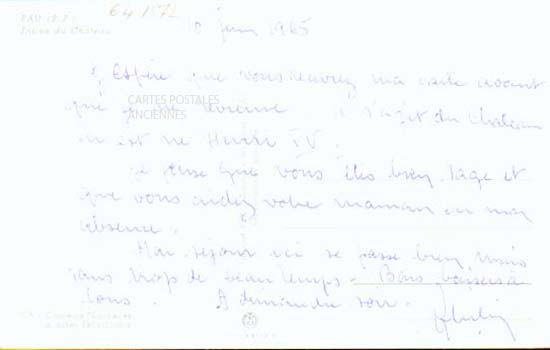 64/572
PAU (B.P.)
Intérieur du Château
juin 1965
J'espère que vous recevrez ma carte avant
que je ne revienne Il s'agit du château
où est né Henri IV.
Je pense que vous êtes bien sage et
que vous aidez votre maman en mon
absence.
Mon séjour ici se passe bien mais
sans trop de beau temps. Bons baisers à
tous. A demain soir.
CARTES POSTALES
ANCIENNES